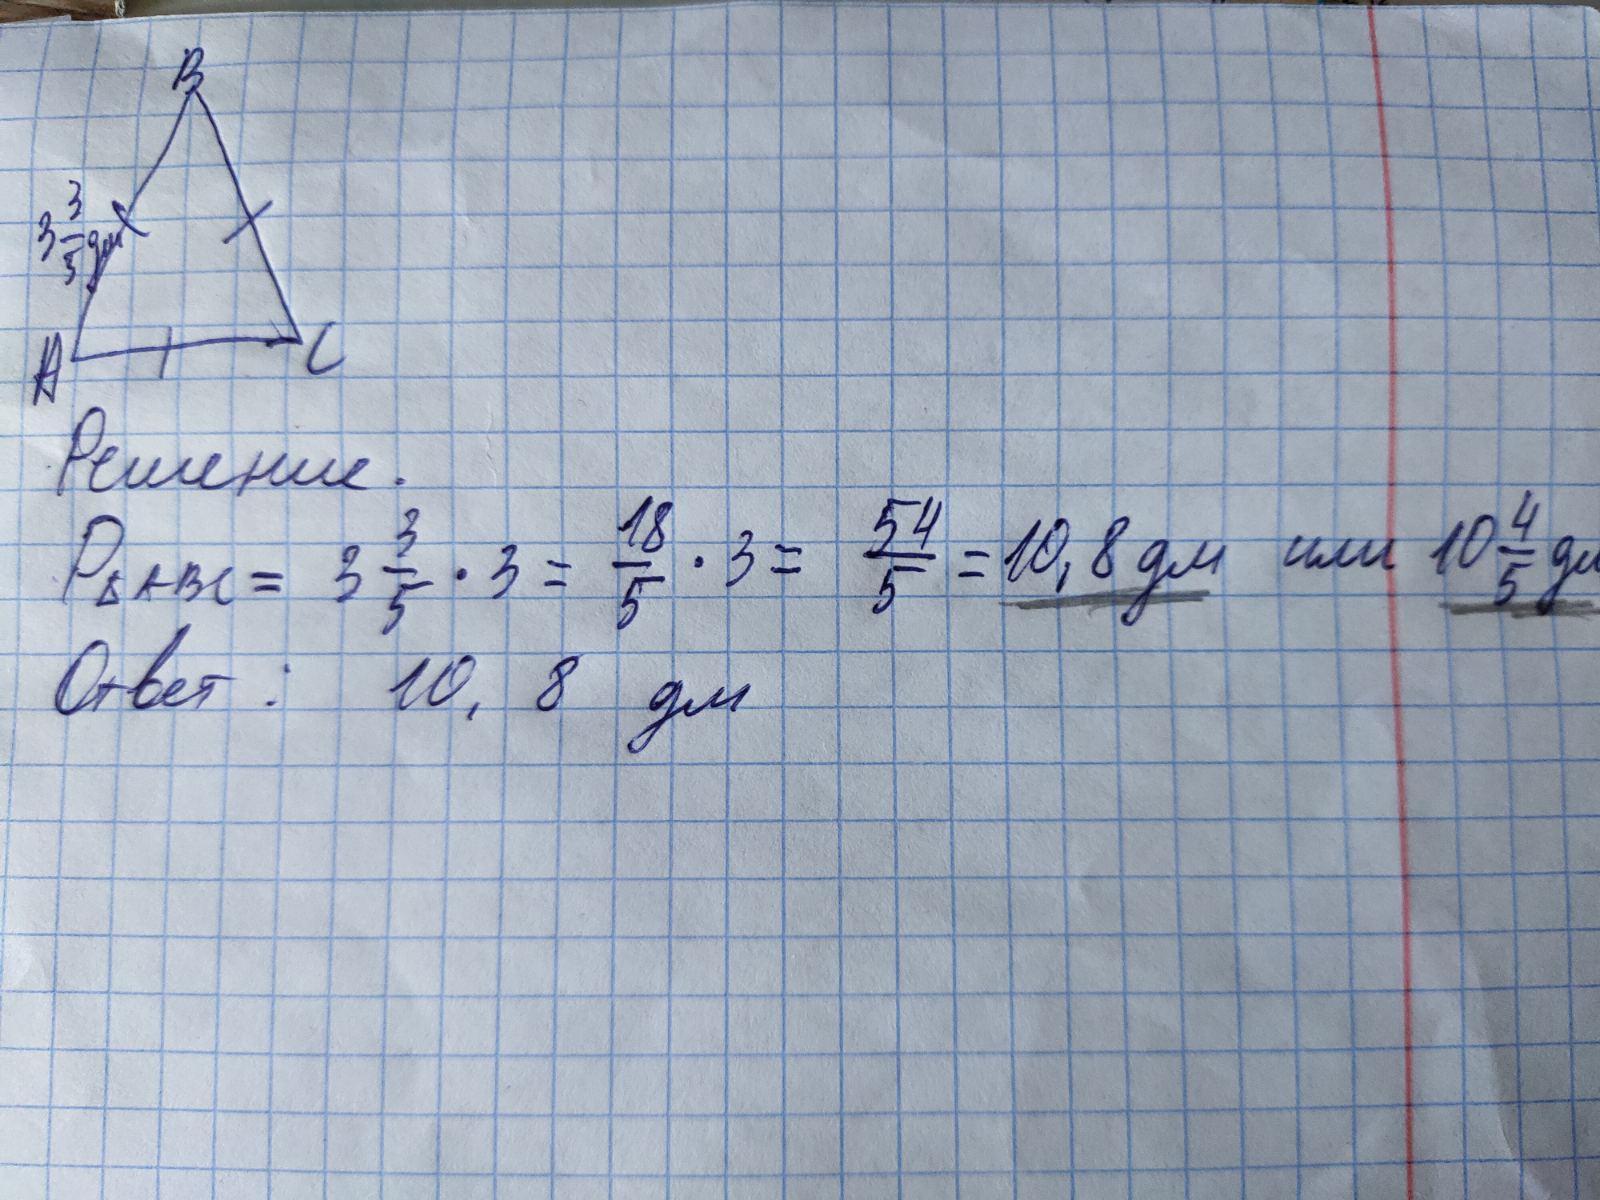 B
3 3/5 дм
A C
Решение.
P∆ABC = 3 3/5 · 3 = 18/5 · 3 = 54/5 = 10,8 дм или 10 4/5 дм
Ответ: 10,8 дм